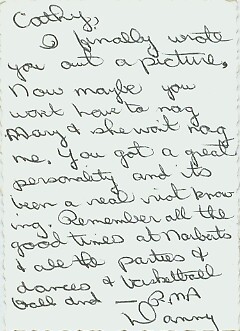 Cathy,
I finally wrote
you out a picture.
Now maybe you
wont have to nag
Mary & she won't nag
me. You got a great
personality and its
been a real riot know
ing. Remember all the
good times at Norberts
& all the parties &
dances & basketball
ball and — RMA
Danny